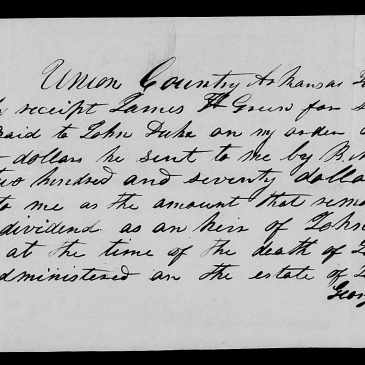 Union Country Arkansas
receipt James H Green for
paid to John Duke on my order
dollars he sent to me by B.
two hundred and seventy dolla
to me as the amount that rema
dividend as an heir of John
at the time of the death of
dministered on the estate of
Geor